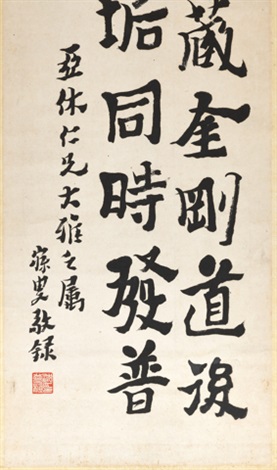 藏奎剛道後
垢同時發普
亞休仁兄大雅之属
寐叟敬録